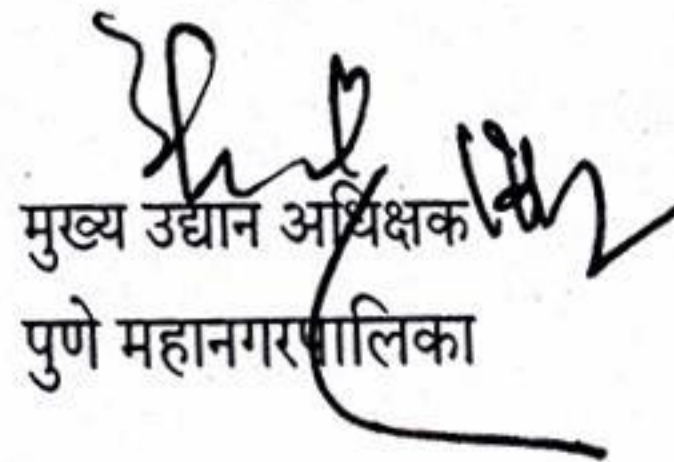 मुख्य उद्यान अधिक्षक
पुणे महानगरपालिका